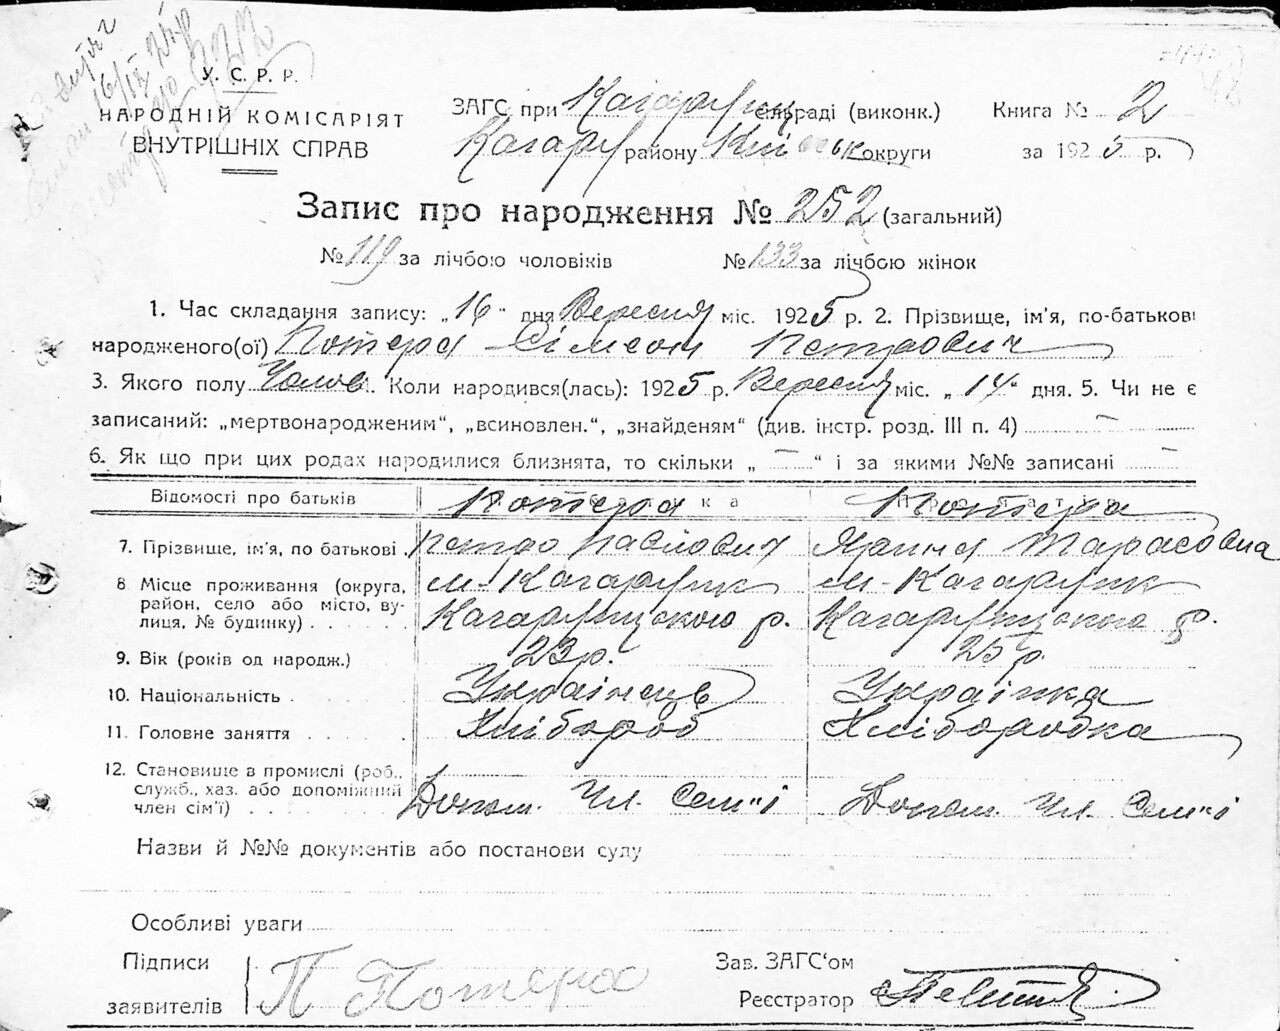 У. С. Р. Р.
НАРОДНІЙ КОМІСАРІЯТ
ВНУТРІШНІХ СПРАВ
ЗАГС при Кагарлиц. сільраді (виконк.)
Кагарл району Київськ округи
Книга № 2
за 1925 р.
Запис про народження № 252 (загальний)
№ 119 за лічбою чоловіків № 133 за лічбою жінок
1. Час складання запису: „16" дня Вересня міс. 1925 р. 2. Прізвище, ім'я, по-батькові
народженого(ої) Потера Сімеон Петрович
3. Якого полу Чолов. Коли народився(лась): 1925 р. Вересня міс. „14" дня. 5. Чи не є
записаний: „мертвонародженим“, „всиновлен.“, „знайденям“ (див. інстр. розд. III п. 4) —
6. Як що при цих родах народилися близнята, то скільки „ — “ і за якими №№ записані —
Відомості про батьків Потера Потера
7. Прізвище, ім'я, по батькові Петро Павлович Ярина Тарасовна
8. Місце проживання (округа, м. Кагарлик м. Кагарлик
район, село або місто, ву-
лиця, № будинку) Кагарлицького р. Кагарлицького р.
9. Вік (років од народж.) 23 р. 25 р.
10. Національність Українець Українка
11. Головне заняття Хлібороб Хліборобка
12. Становище в промислі (роб.,
служб., хаз. або допоміжний
член сім'ї) Допом. Чл. Сем"ї Допом. Чл. Сем"ї
Назви й №№ документів або постанови суду
Особливі уваги
Підписи
заявителів П Потера
Зав. ЗАГС‘ом
Реєстратор